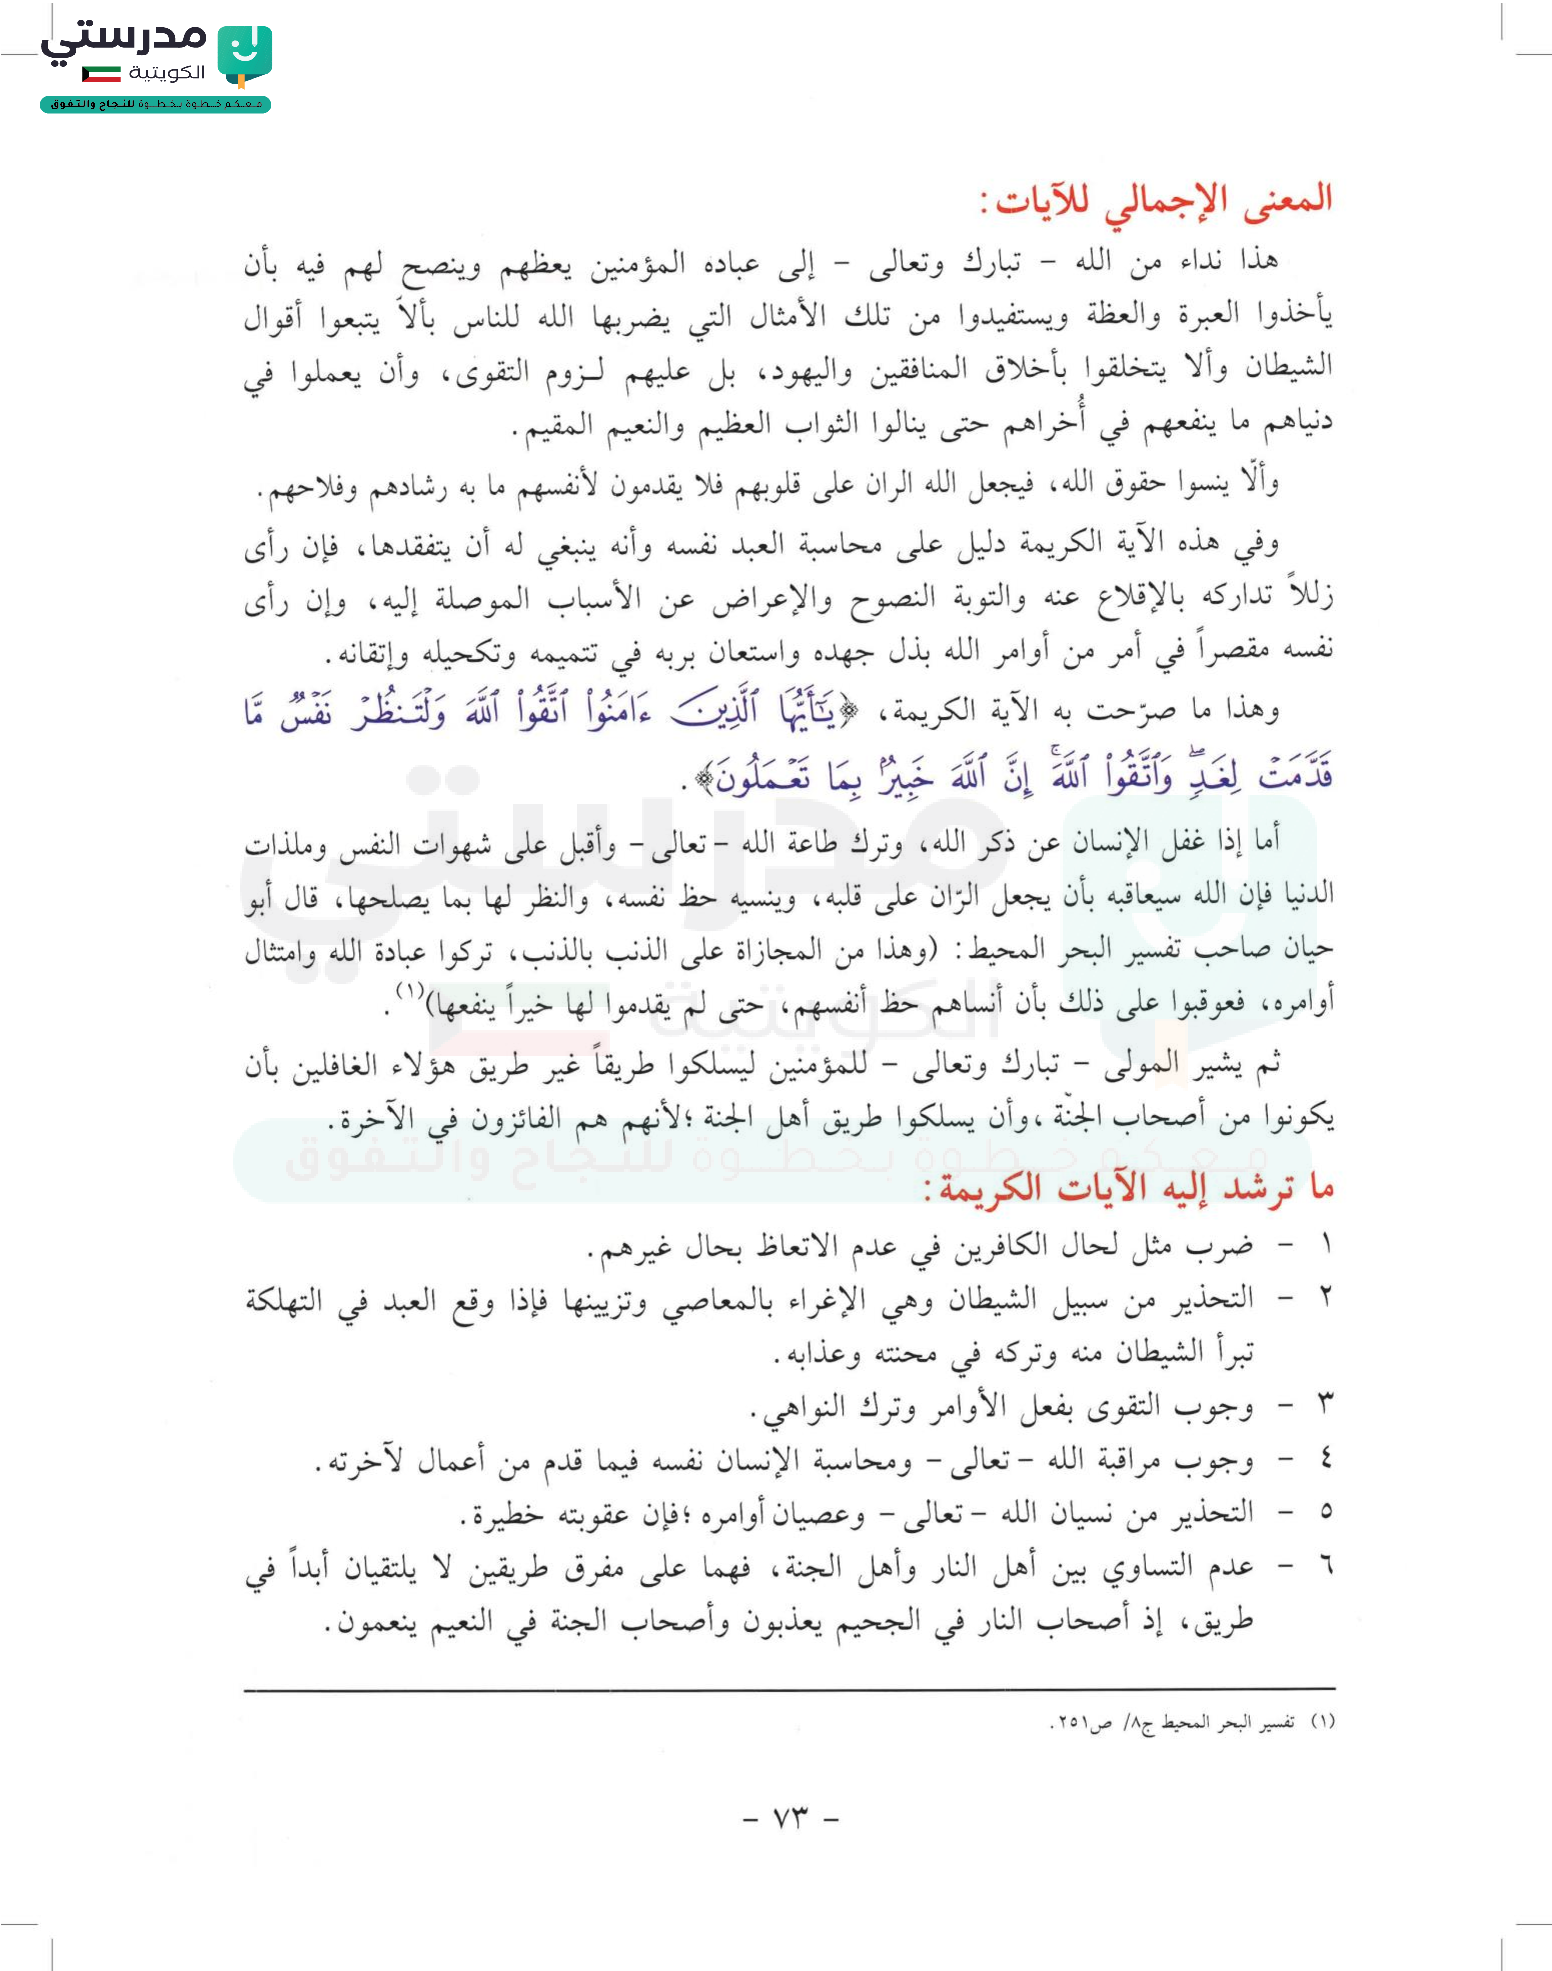 مدرستي
الكويتية
معكم خطوة بخطوة للنجاح والتفوق
المعنى الإجمالي للآيات:
هذا نداء من الله - تبارك وتعالى - إلى عباده المؤمنين يعظهم وينصح لهم فيه بأن
يأخذوا العبرة والعظة ويستفيدوا من تلك الأمثال التي يضربها الله للناس بألاّ يتبعوا أقوال
الشيطان وألا يتخلقوا بأخلاق المنافقين واليهود، بل عليهم لـزوم التقوى، وأن يعملوا في
دنياهم ما ينفعهم في أُخراهم حتى ينالوا الثواب العظيم والنعيم المقيم.
وألّا ينسوا حقوق الله، فيجعل الله الران على قلوبهم فلا يقدمون لأنفسهم ما به رشادهم وفلاحهم.
وفي هذه الآية الكريمة دليل على محاسبة العبد نفسه وأنه ينبغي له أن يتفقدها، فإن رأى
زللاً تداركه بالإقلاع عنه والتوبة النصوح والإعراض عن الأسباب الموصلة إليه، وإن رأى
نفسه مقصراً في أمر من أوامر الله بذل جهده واستعان بربه في تتميمه وتكحيله وإتقانه.
وهذا ما صرّحت به الآية الكريمة، ﴿يَٰٓأَيُّهَا ٱلَّذِينَ ءَامَنُوا۟ ٱتَّقُوا۟ ٱللَّهَ وَلْتَنظُرْ نَفْسٌ مَّا
قَدَّمَتْ لِغَدٍۖ وَٱتَّقُوا۟ ٱللَّهَۚ إِنَّ ٱللَّهَ خَبِيرٌۢ بِمَا تَعْمَلُونَ﴾.
أما إذا غفل الإنسان عن ذكر الله، وترك طاعة الله - تعالى - وأقبل على شهوات النفس وملذات
الدنيا فإن الله سيعاقبه بأن يجعل الرّان على قلبه، وينسيه حظ نفسه، والنظر لها بما يصلحها، قال أبو
حيان صاحب تفسير البحر المحيط: (وهذا من المجازاة على الذنب بالذنب، تركوا عبادة الله وامتثال
أوامره، فعوقبوا على ذلك بأن أنساهم حظ أنفسهم، حتى لم يقدموا لها خيراً ينفعها)(١).
ثم يشير المولى - تبارك وتعالى - للمؤمنين ليسلكوا طريقاً غير طريق هؤلاء الغافلين بأن
يكونوا من أصحاب الجنّة ،وأن يسلكوا طريق أهل الجنة ؛لأنهم هم الفائزون في الآخرة.
ما ترشد إليه الآيات الكريمة:
١ - ضرب مثل لحال الكافرين في عدم الاتعاظ بحال غيرهم.
٢ - التحذير من سبيل الشيطان وهي الإغراء بالمعاصي وتزيينها فإذا وقع العبد في التهلكة
تبرأ الشيطان منه وتركه في محنته وعذابه.
٣ - وجوب التقوى بفعل الأوامر وترك النواهي.
٤ - وجوب مراقبة الله - تعالى - ومحاسبة الإنسان نفسه فيما قدم من أعمال لآخرته.
٥ - التحذير من نسيان الله - تعالى - وعصيان أوامره ؛فإن عقوبته خطيرة.
٦ - عدم التساوي بين أهل النار وأهل الجنة، فهما على مفرق طريقين لا يلتقيان أبداً في
طريق، إذ أصحاب النار في الجحيم يعذبون وأصحاب الجنة في النعيم ينعمون.
(١) تفسير البحر المحيط ج٨/ ص٢٥١.
- ٧٣ -